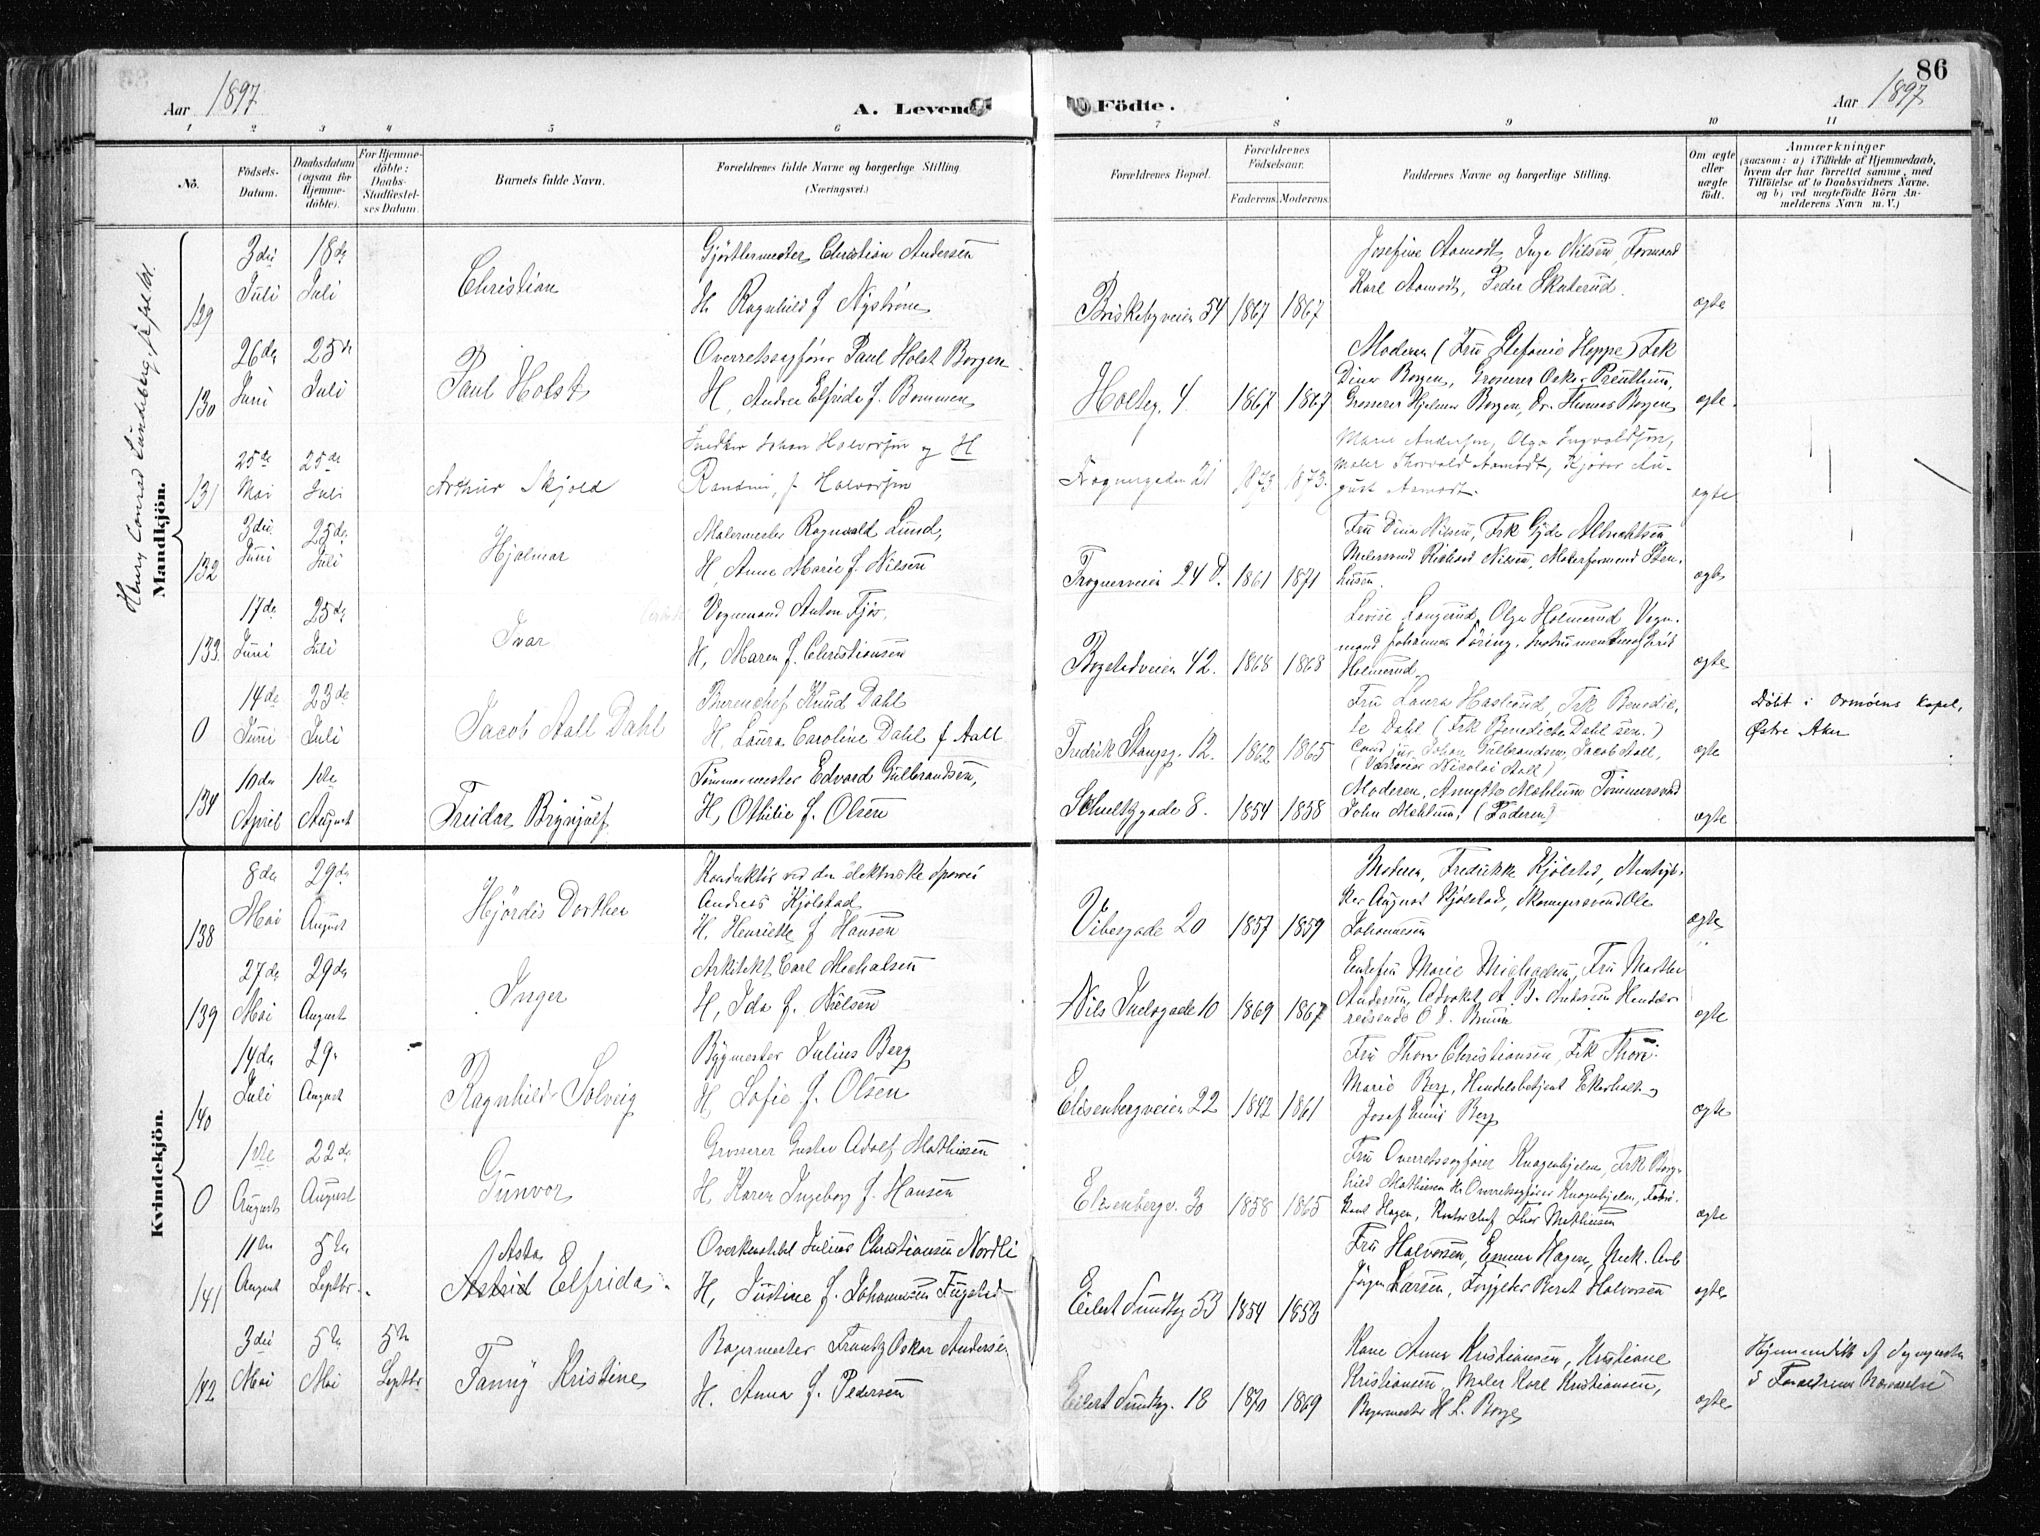 86
Aar 1897
A. Levende Födte.
Aar 1897
1 2 3 4 5 6 7 8 9 10 11
No.
Födsels-Datum.
Daabsdatum (ogsaa for Hjemme-döbte).
For Hjemme-döbte: Daabs-Stadfæstel-ses Datum.
Barnets fulde Navn.
Forældrenes fulde Navne og borgerlige Stilling. (Næringsvei.)
Forældrenes Bopæl.
Forældrenes Födselsaar.
Faderens. Moderens.
Faddernes Navne og borgerlige Stilling.
Om ægte eller uægte födt.
Anmærkninger
(saasom: a) i Tilfælde af Hjemmedaab,
hvem der har forrettet samme, med
Tilföielse af to Daabsvidners Navne.
og b) ved uægtefödte Börn An-
melderens Navn m. V.)
Mandkjön.
Henry Conrad Lundeberg
129 3die Juli 18de Juli Christian
Gjørtlermester Christian Andersen
H. Ragnhild f. Nystrøm
Briskebyveien 54 1867 1867
Josefine Aamodt, Inga Nilsen, Formand
Karl Aamodt, Peder Skaterud.
ægte
130 26de Juni 25de Juli Paul Holst
Overretssagfører Paul Holst Borgen
H. Andrea Elfrida f. Bommen
Holteg. 4. 1867 1867
Moderen (Fru Stefanie Heppe) Frk
Dina Borgen, Grosserer Oskar
Grosserer Hjalmar Borgen, Dr. Thomas Borgen
ægte.
131 25de Mai 25de Juli Arthur Skjold
Snedker Johan Halvorsen og H
Randine f. Halvorsen
Frognergaden 21 1873 1873.
Marie Andersen, Olga Ingvaldsen,
Maler Thorvald Aamodt, Kjører Au-
gust Aamodt.
ægte
132 3die Juni 25de Juli Hjalmar
Malermester Ragnvald Lund,
H. Anna Marie f. Nilsen
Frognerveien 24 D. 1861 1871
Fru Dina Nilsen, Frk Gyda Albrechtsen
Malersvend Richard Nilsen, Malerformand Sten-
ersen.
ægte
133. 17de Juni 25de Juli Ivar
Vognmand Anton Fjør,
H. Maren f. Christiansen
Bogstadveien 42. 1868 1868
Lovise Langerud, Olga Holmerud, Vogn-
mand Johannes
Holmerud.
ægte
0 14de Juni 23de Juli Jacob Aall Dahl
Bureauchef Knud Dahl
H. Laura Caroline Dahl f. Aall
Fredrik Stangsg. 12. 1862 1865
Fru Laura Haslund, Frk Benedic-
te Dahl (Frk Benedicte Dahl sen.)
Cand jur Johan Gulbrandsen, Jacob Aall,
Nicolai Aall)
ægte
Døbt i Ormøens Kapel,
Østre Aker
134 10de April 1ste August Freidar Brynjulf
Tømmermester Edvard Gulbrandsen,
H. Othilie f. Olsen
Schultzgade 8. 1854 1858
Moderen, Mæhlum Tømmersvend
John Mæhlum, (Faderen)
ægte
Kvindekjön.
138 8de Mai 29de August Hjørdis Dorthea
Konduktør ved den elektriske sporvei
Andreas Kjølstad
H. Henriette f. Hansen
Vibesgade 20 1857 1859
Moderen, Fredrikke Kjølstad,
August Kjølstad, Skomagersvend Ole
Johannesen
ægte
139 27de Mai 29de August Inger
Arkitekt Carl Michalsen
H. Ida f. Nielsen
Nils Juelsgade 10 1869 1867
Enkefru Marie Michalsen, Fru Marthe
Andersen, Advokat A. B. Andersen Handels-
reisende O. J. Bruun
ægte
140 14de Juli 29. August Ragnhild Solveig
Bygmester Julius Berg
H. Sofie f. Olsen
Elisenbergveien 22 1842 1861
Fru Thora Christiansen, Frk Thora
Marie Berg, Handelsbetjent Ekerholt og
Josef Emil Berg
ægte
0 1ste August 22de August Gunvor
Grosserer Gustav Adolf Mathiesen
H. Karen Ingeborg f. Hansen
Elisenbergv. 30 1858 1865
Fru Overretssagfører Knagenhjelm, Frk Borg-
hild Mathiesen Hr Overretssagfører Knagenhjelm, Fabri-
kant Hagen, Kontorchef Thor Mathiesen
ægte
141 11te August 5te Septbr. Asta Astrid Elfrida.
Overkonstabel Julius Christiansen Nordli
H. Justine f. Johannesen Fugstad
Eilert Sundtsg 53 1854 1853
Fru Halvorsen, Emma Hagen, Mek. Arb
Jørgen Larsen, Forgylder Bernt Halvorsen
ægte
142 3die Mai 5te Mai 5te Septbr Fanny Kristine
Bagermester Frantz Oskar Andersen
H. Anna f. Pedersen
Eilert Sundtsg. 18 1870 1869
Kone Anna Kristiansen, Kristiane
Kristiansen, Maler Karl Kristiansen,
Bagermester H. L. Borge
ægte
Hjemmedøbt af
i Forældrenes Nærværelse